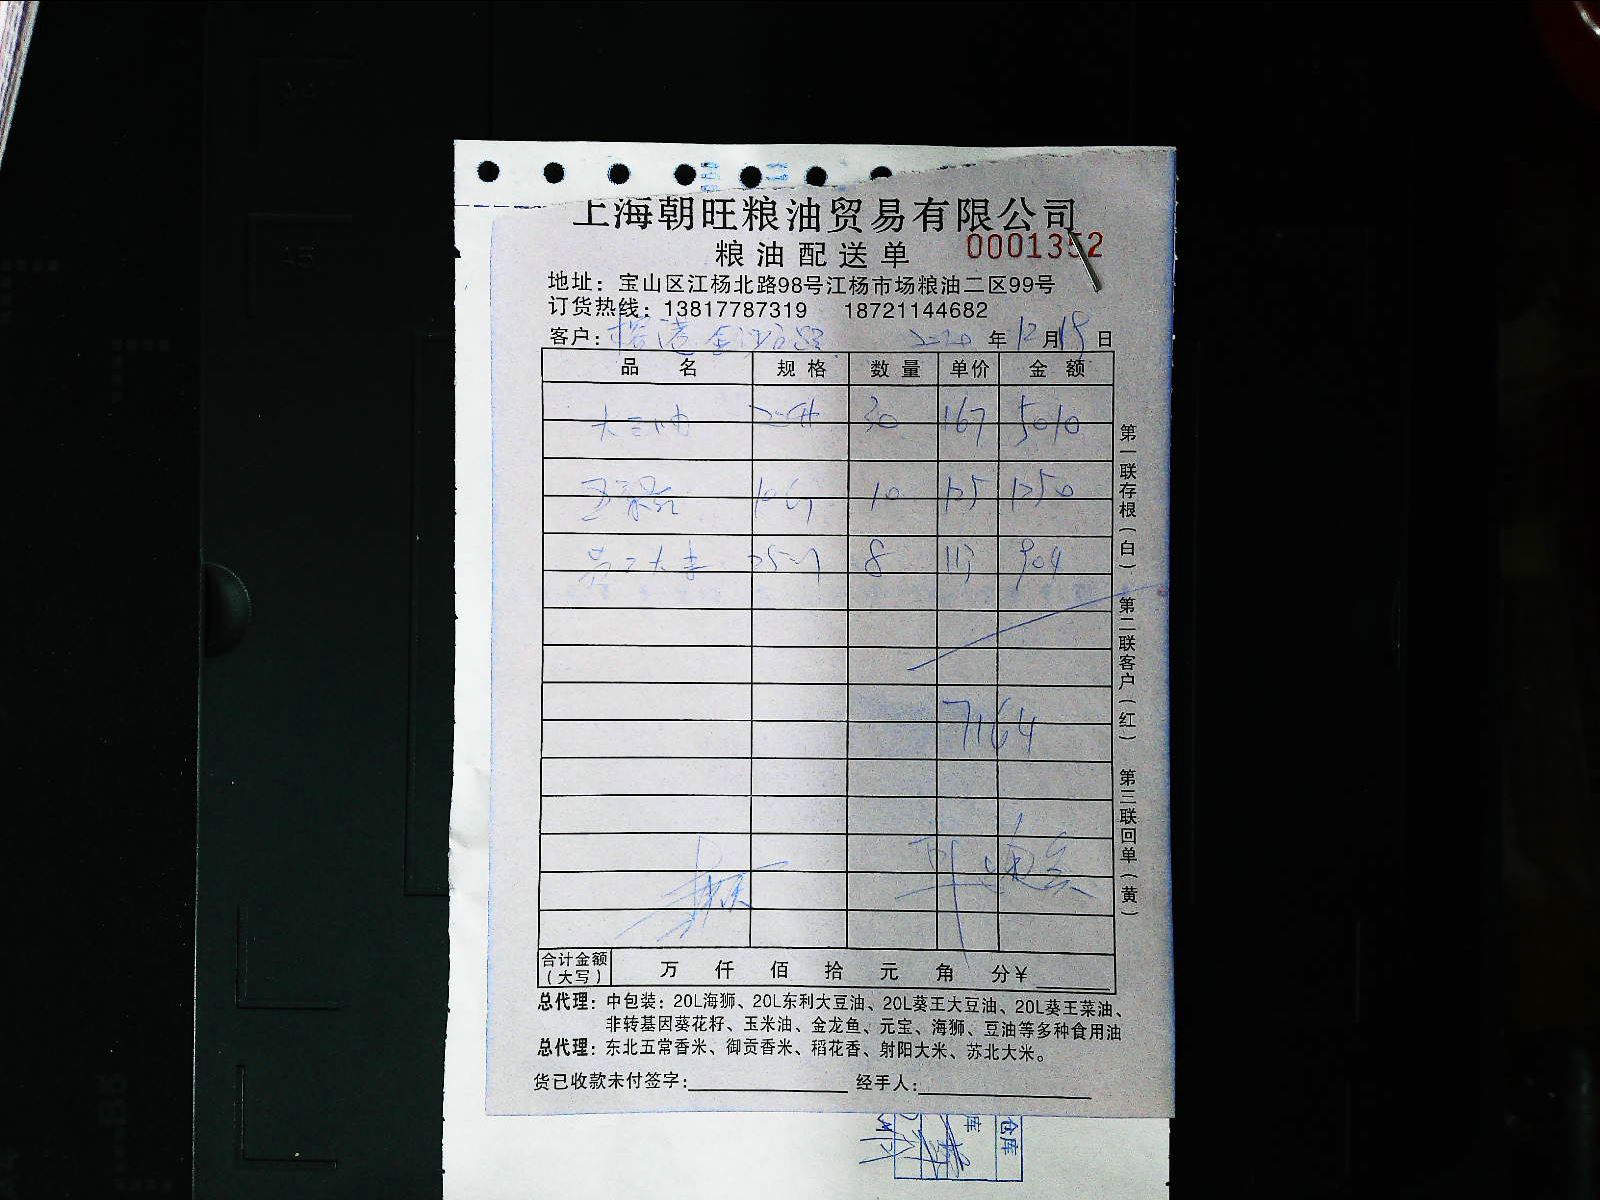 上海朝旺粮油贸易有限公司
粮油配送单 0001352
地址：宝山区江杨北路98号江杨市场粮油二区99号
订货热线：13817787319 18721144682
客户： 2020 年 12 月 19 日
品名 规格 数量 单价 金额
30 167 5010
10 125 1250
大米 8 113 904
7164
合计金额（大写） 万 仟 佰 拾 元 角 分￥
总代理：中包装：20L海狮、20L东利大豆油、20L葵王大豆油、20L葵王菜油、
非转基因葵花籽、玉米油、金龙鱼、元宝、海狮、豆油等多种食用油
总代理：东北五常香米、御贡香米、稻花香、射阳大米、苏北大米。
货已收款未付签字： 经手人：
第一联存根（白） 第二联客户（红） 第三联回单（黄）
仓库